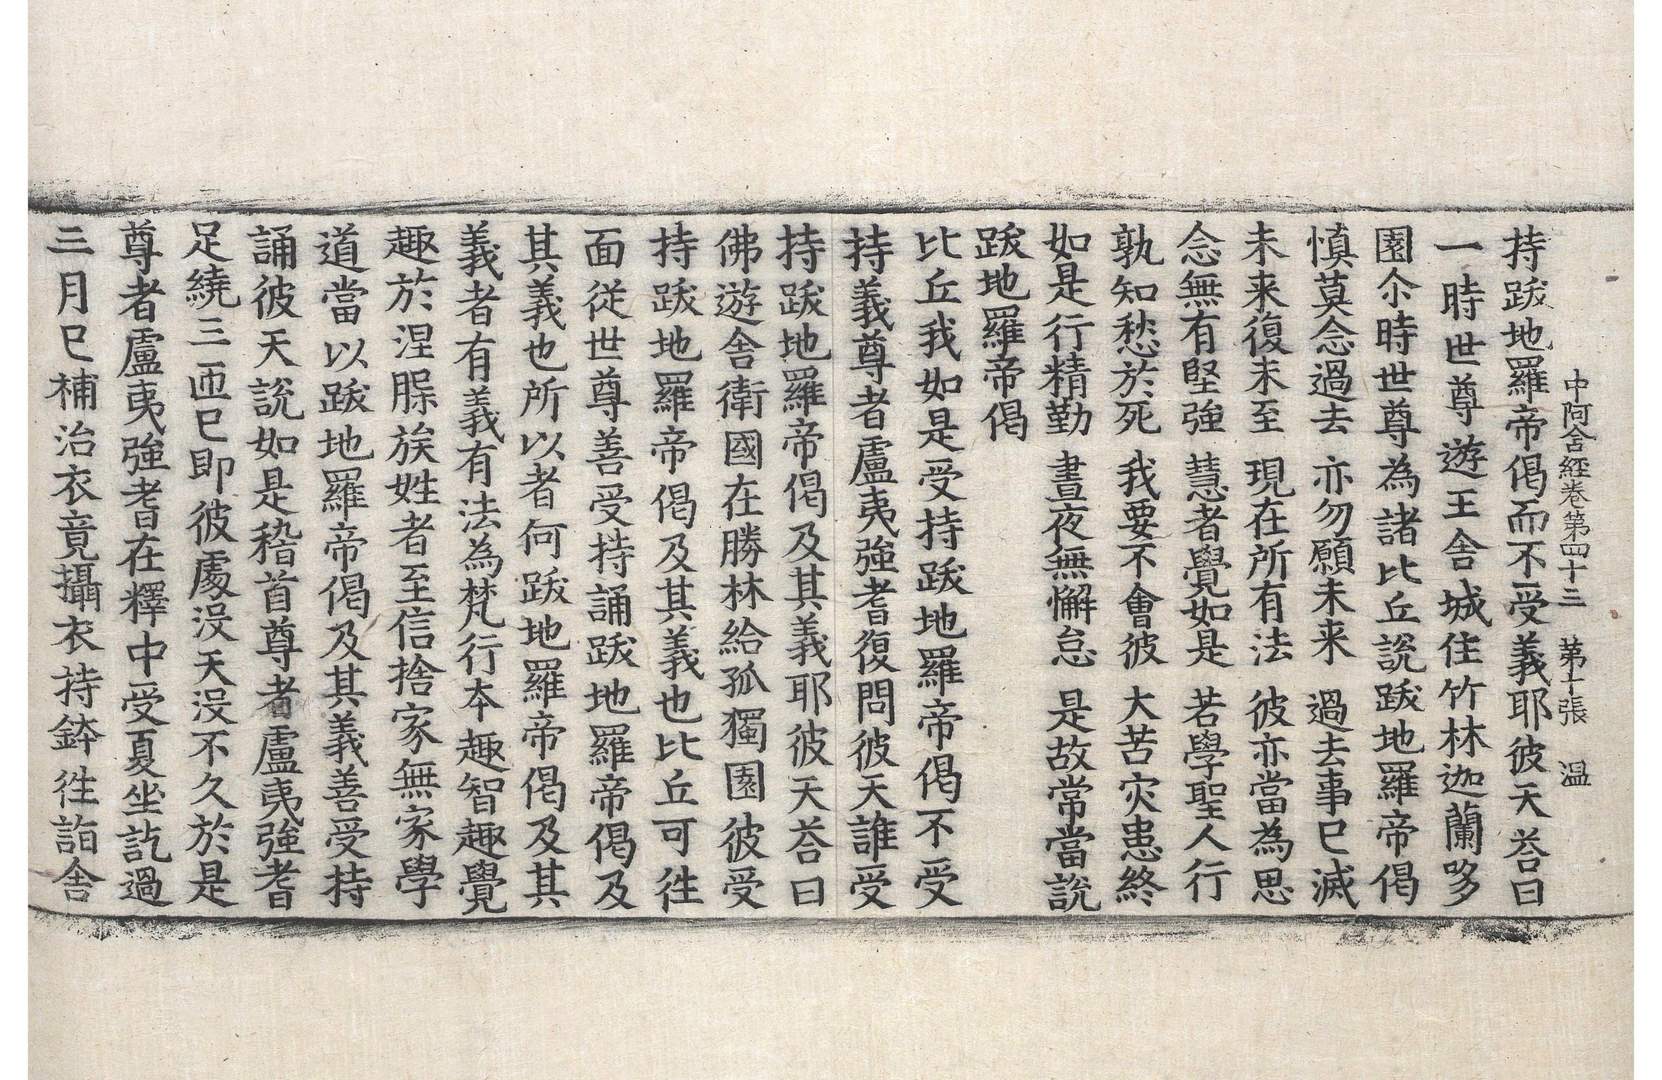 中阿含經卷第四十三 第十張 温
持跋地羅帝偈而不受義耶彼天荅曰
一時世尊遊王舍城住竹林迦蘭哆
園尒時世尊為諸比丘說跋地羅帝偈
慎莫念過去 亦勿願未来 過去事已滅
未来復未至 現在所有法 彼亦當為思
念無有堅強 慧者覺如是 若學聖人行
孰知愁於死 我要不會彼 大苦灾患終
如是行精勤 晝夜無懈怠 是故常當說
跋地羅帝偈
比丘我如是受持跋地羅帝偈不受
持義尊者盧夷強耆復問彼天誰受
持跋地羅帝偈及其義耶彼天荅曰
佛遊舍衛國在勝林給孤獨園彼受
持跋地羅帝偈及其義也比丘可往
面從世尊善受持誦跋地羅帝偈及
其義也所以者何跋地羅帝偈及其
義者有義有法為梵行本趣智趣覺
趣於涅槃族姓者至信捨家無家學
道當以跋地羅帝偈及其義善受持
誦彼天說如是稽首尊者盧夷強耆
足繞三匝已即彼處没天没不久於是
尊者盧夷強耆在釋中受夏坐訖過
三月已補治衣竟攝衣持鉢往詣舍